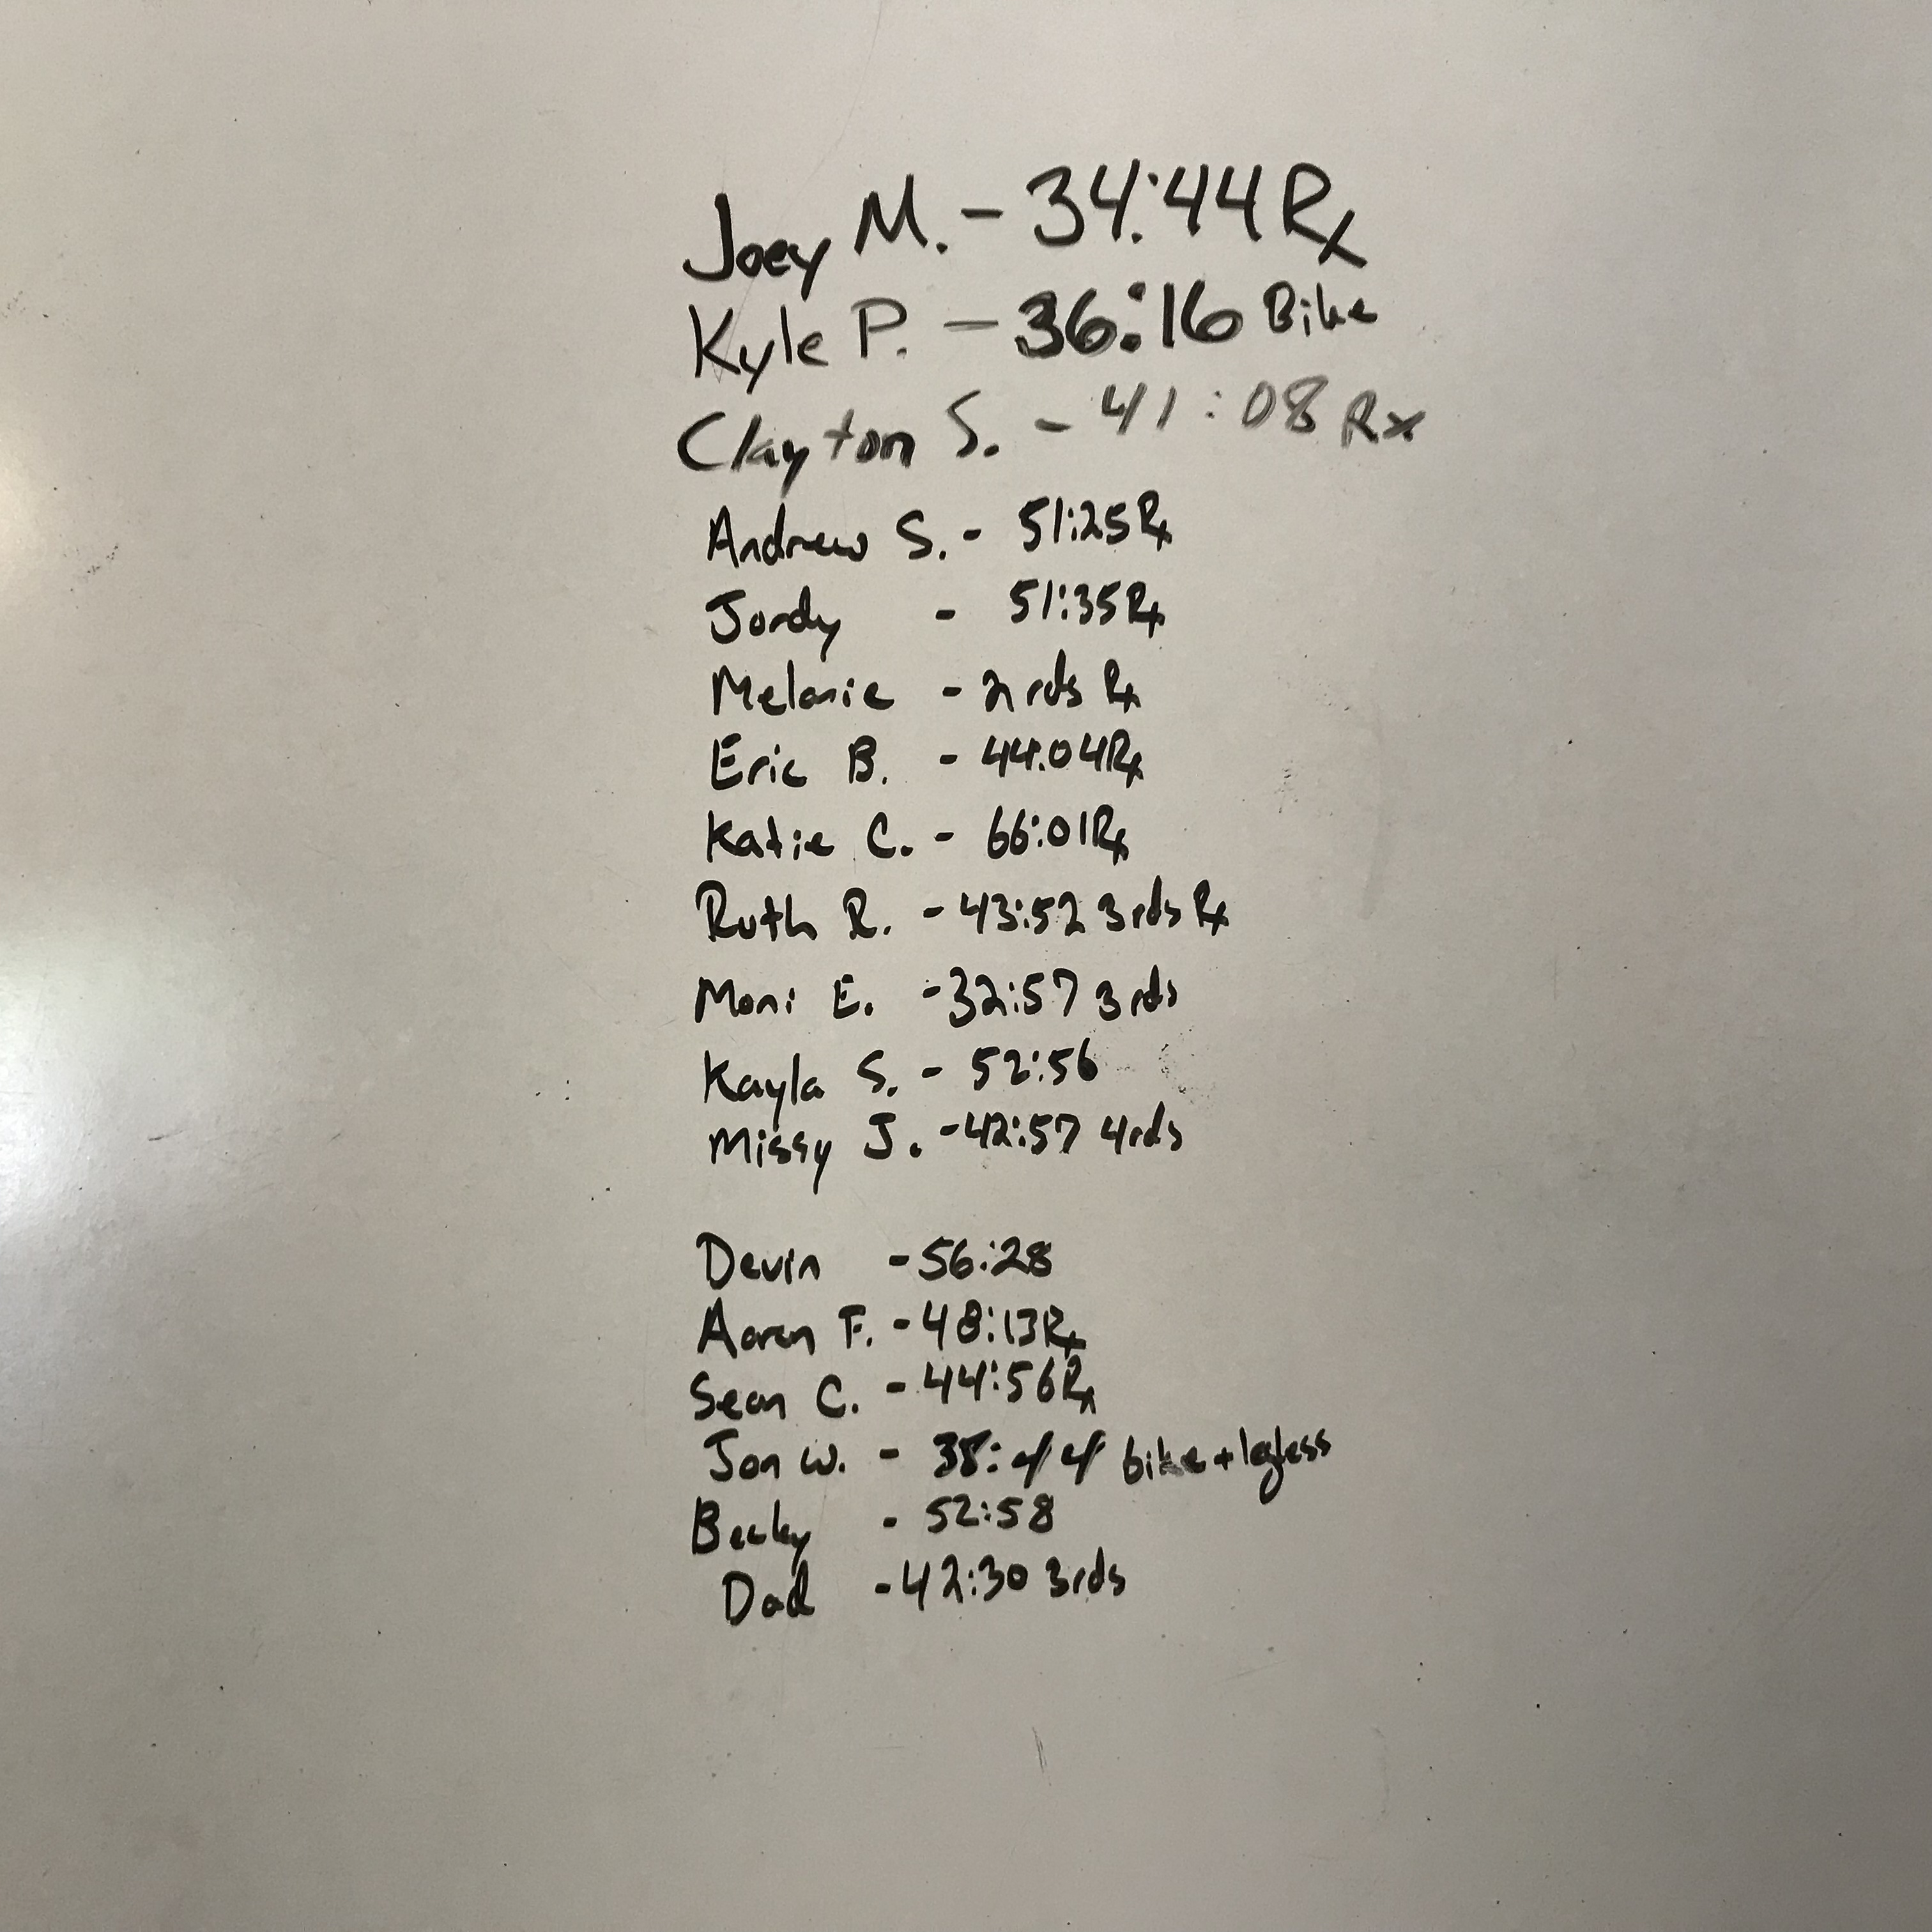 Joey M. - 34:44 Rx
Kyle P. - 36:16 Bike
Clayton S. - 41:08 Rx
Andrew S. - 51:25 Rx
Jordy - 51:35 Rx
Melanie - 2 rds Rx
Eric B. - 44:04 Rx
Katie C. - 66:01 Rx
Ruth R. - 43:52 3 rds Rx
Moni E. - 32:57 3 rds
Kayla S. - 52:56
Missy J. - 42:57 4 rds
Devin - 56:28
Aaron F. - 48:13 Rx
Sean C. - 44:56 Rx
Jon W. - bike + legless
Becky - 52:58
Dad - 42:30 3 rds